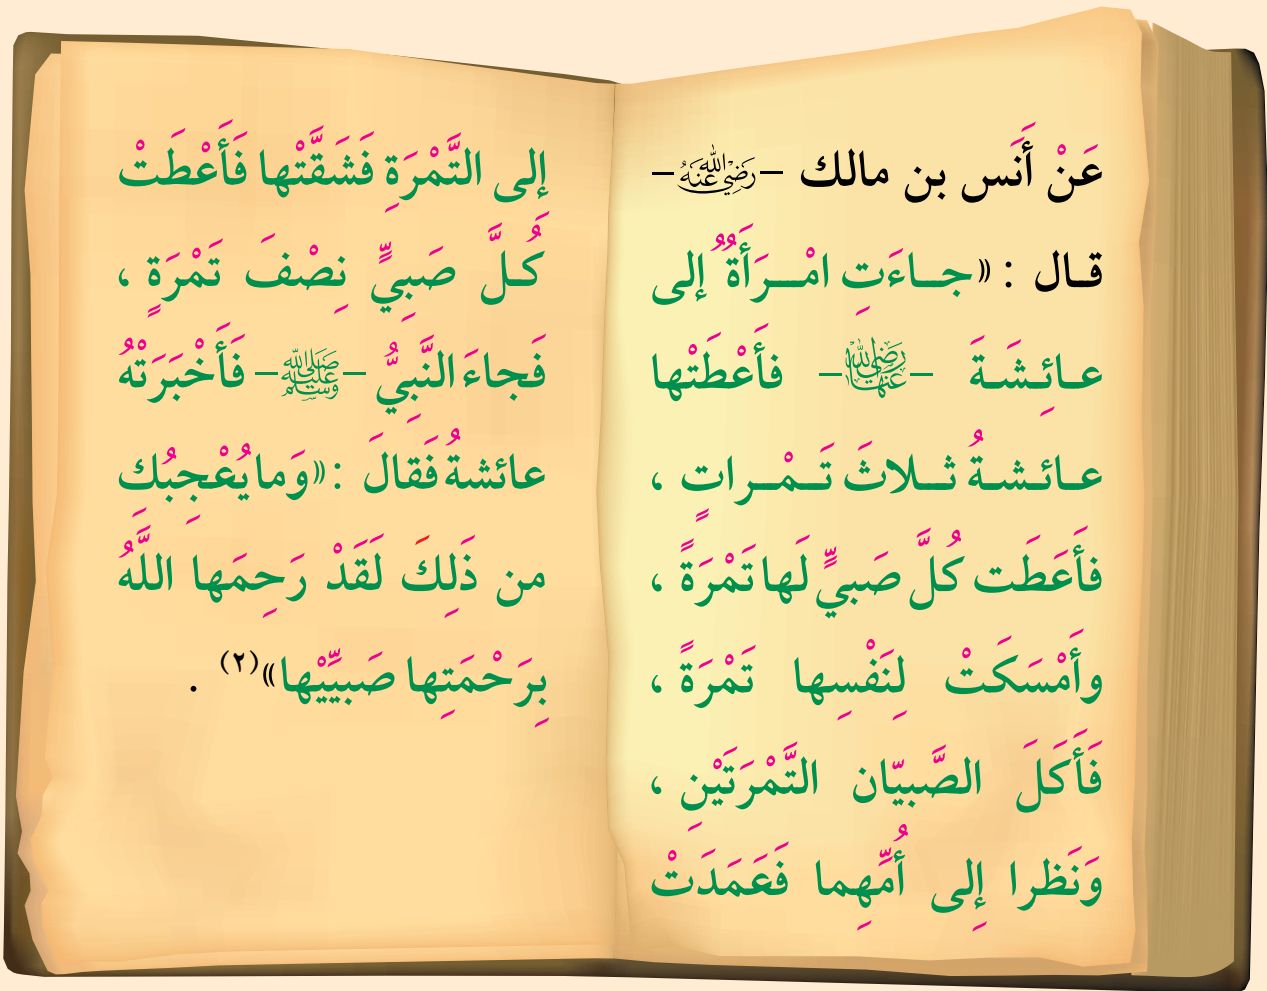 عَنْ أَنَس بن مالك –رَضِيَ اللَّهُ عَنْهُ–
قـال : «جــاءَتِ امْــرَأَةٌ إلى
عـائِـشَـةَ –رَضِيَ اللَّهُ عَنْهَا– فأَعْطَتْها
عـائـشـةُ ثــلاثَ تَــمْــراتٍ ،
فأَعَطَت كُلَّ صَبيٍّ لَها تَمْرَةً ،
وأَمْسَكَتْ لِنَفْسِها تَمْرَةً ،
فَأَكَلَ الصَّبيّان التَّمْرَتَيْنِ ،
وَنَظرا إِلى أُمِّهِما فَعَمَدَتْ
إلى التَّمْرَةِ فَشَقَّتْها فَأَعْطَتْ
كُـلَّ صَبِيٍّ نِصْفَ تَمْرَةٍ ،
فَجاءَ النَّبِيُّ –ﷺ– فَأَخْبَرَتْهُ
عائشةُ فَقالَ : «وَما يُعْجِبُكِ
من ذَلِكَ لَقَدْ رَحِمَها اللَّهُ
بِرَحْمَتِها صَبيِّيْها» (٢) .